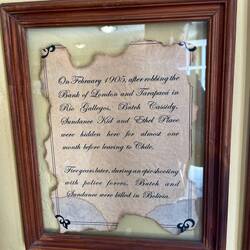 On February 1905, after robbing the
Bank of London and Tarapacá in
Río Gallegos, Butch Cassidy,
Sundance Kid and Ethel Place
were hidden here for almost one
month before leaving to Chile.
Five years later, during an epic shooting
with police forces, Butch and
Sundance were killed in Bolivia.